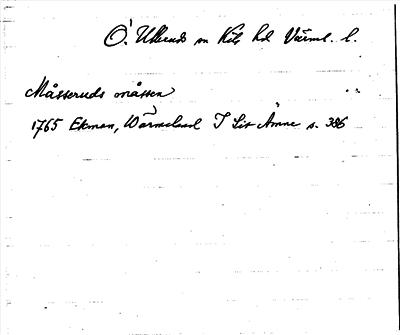 Ö. Ullerud sn Kils hd Värml. l.
Måsseruds måssen
1765 Ekman, Wärmeland I Sit Ämne s. 386